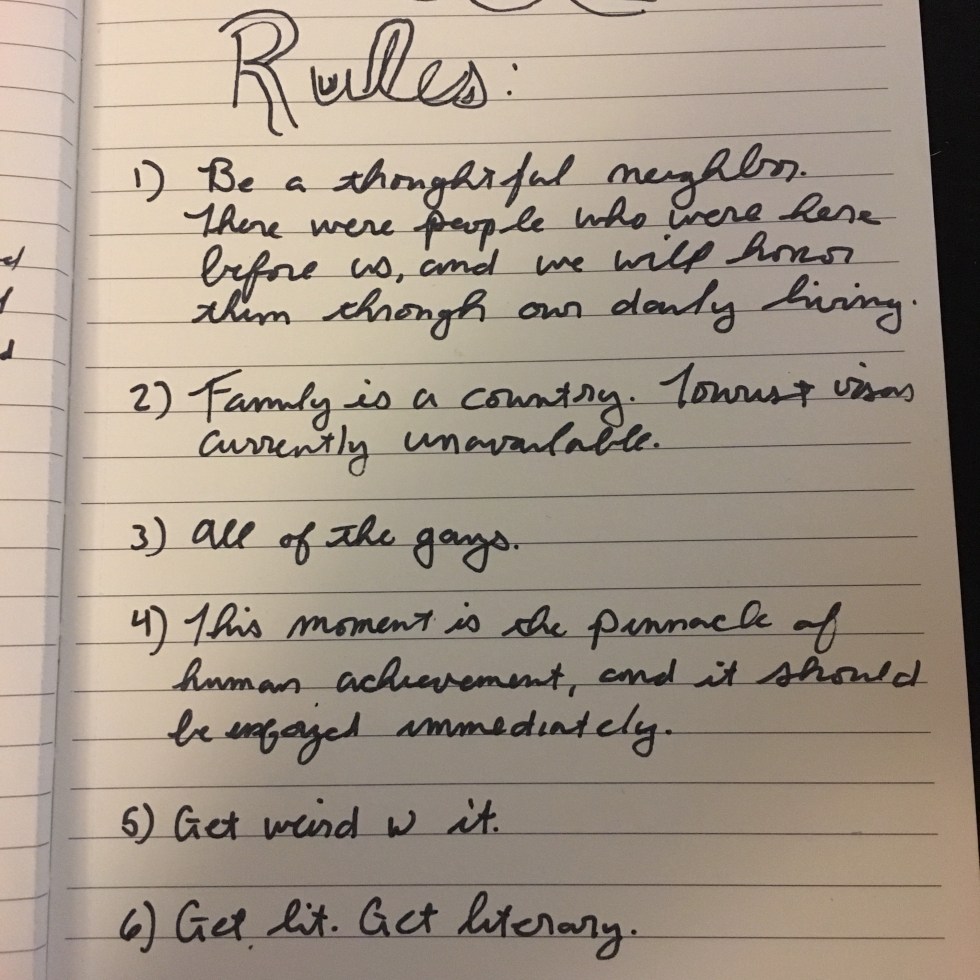 Rules:
1) Be a thoughtful neighbor.
There were people who were here
before us, and we will honor
them through our daily living.
2) Family is a country. Tourist visas
currently unavailable.
3) All of the gays.
4) This moment is the pinnacle of
human achievement, and it should
be enjoyed immediately.
5) Get weird w it.
6) Get lit. Get literary.